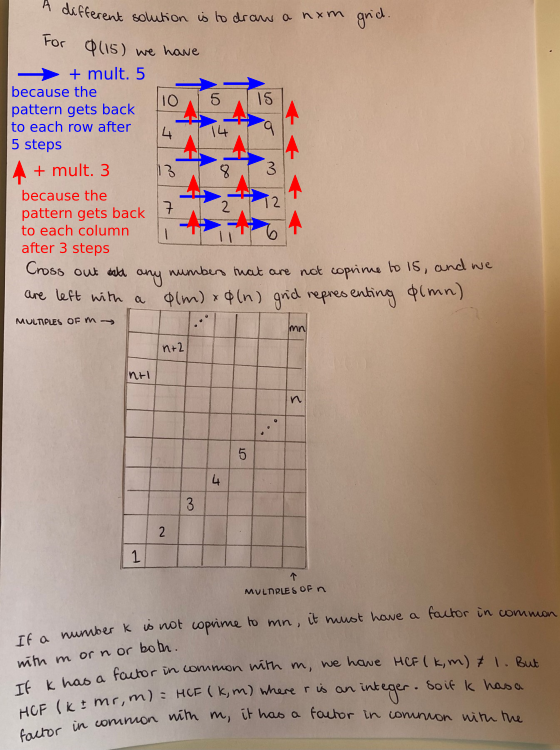 A different solution is to draw a n×m grid.
For φ(15) we have
→ + mult. 5
because the
pattern gets back
to each row after
5 steps
↑ + mult. 3
because the
pattern gets back
to each column
after 3 steps
10 5 15
4 14 9
13 8 3
7 2 12
1 11 6
Cross out any numbers that are not coprime to 15, and we
are left with a φ(m) × φ(n) grid representing φ(mn)
MULTIPLES OF m →
⋰ mn
n+2
n+1
n
⋰
5
4
3
2
1
↑
MULTIPLES OF n
If a number k is not coprime to mn, it must have a factor in common
with m or n or both.
If k has a factor in common with m, we have HCF(k,m) ≠ 1. But
HCF (k ± mr, m) = HCF (k,m) where r is an integer. So if k has a
factor in common with m, it has a factor in common with the